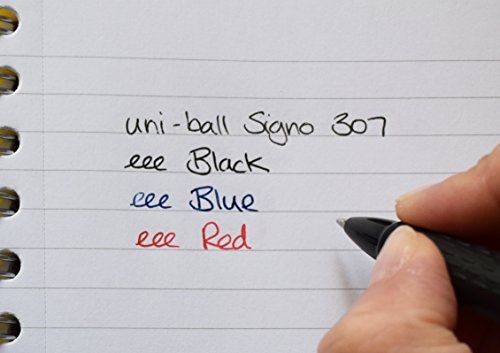 uni-ball Signo 307
eee Black
eee Blue
eee Red